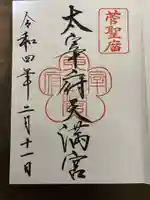 菅聖廟
太宰府天満宮
令和四年二月十一日